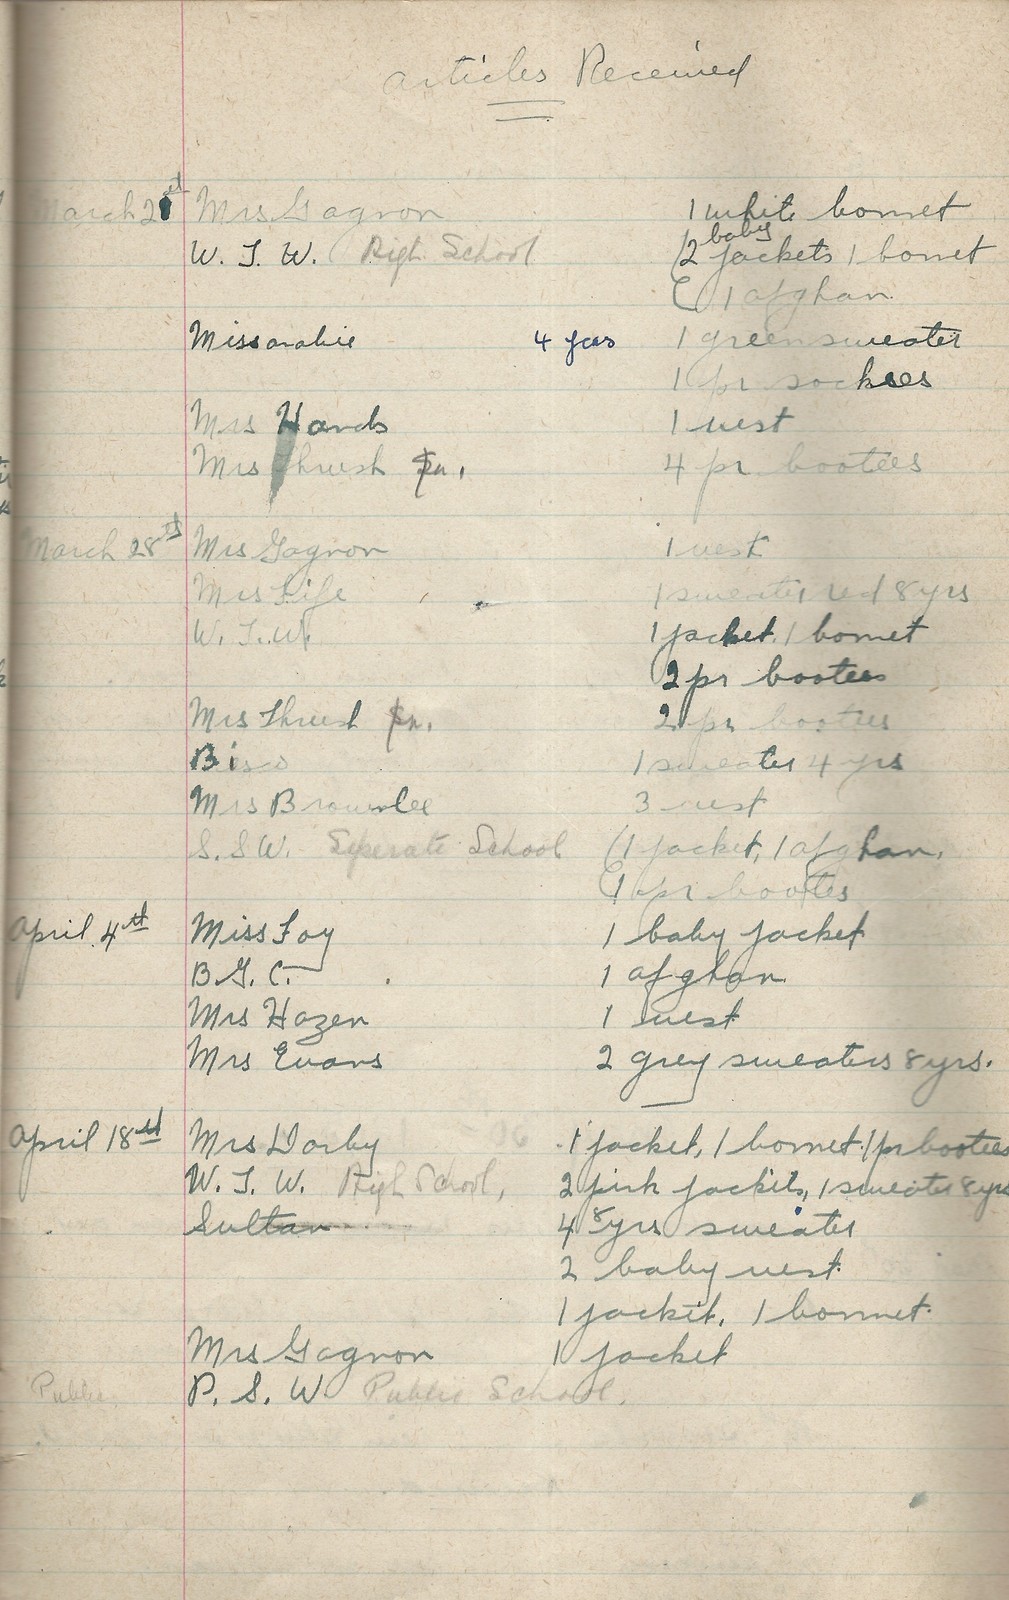 Articles Received
March 21st Mrs Gagnon 1 white bonnet
W. I. W. High School 2 baby jackets 1 bonnet
1 afghan.
Miss 4 1 green sweater
1 pr sockees
Mrs Hands 1 vest
Mrs Thrush 4 pr bootees
March 28th Mrs Gagnon 1 vest
Mrs Fife 1 sweater red 8 yrs
W. I. W. 1 jacket. 1 bonnet
2 pr bootees
Mrs Thrush 2 pr bootees
1 sweater 4 yrs
Mrs Brownlee 3 vest
S. S W. Seperate School 1 jacket, 1 afghan.
1 pr bootes
April 4th Miss Foy 1 baby jacket
B. G. C. 1 afghan.
Mrs Hazen 1 vest
Mrs Evans 2 grey sweaters 8 yrs.
April 18th Mrs Darby 1 jacket, 1 bonnet. 1 pr bootees
W. I. W. High School, 2 pink jackits, 1 sweater 8 yrs
Sultan 4 8 yrs sweater
2 baby vest.
1 jackit, 1 bonnet.
Mrs Gagnon 1 jacket
Public P. S. W. Public School.